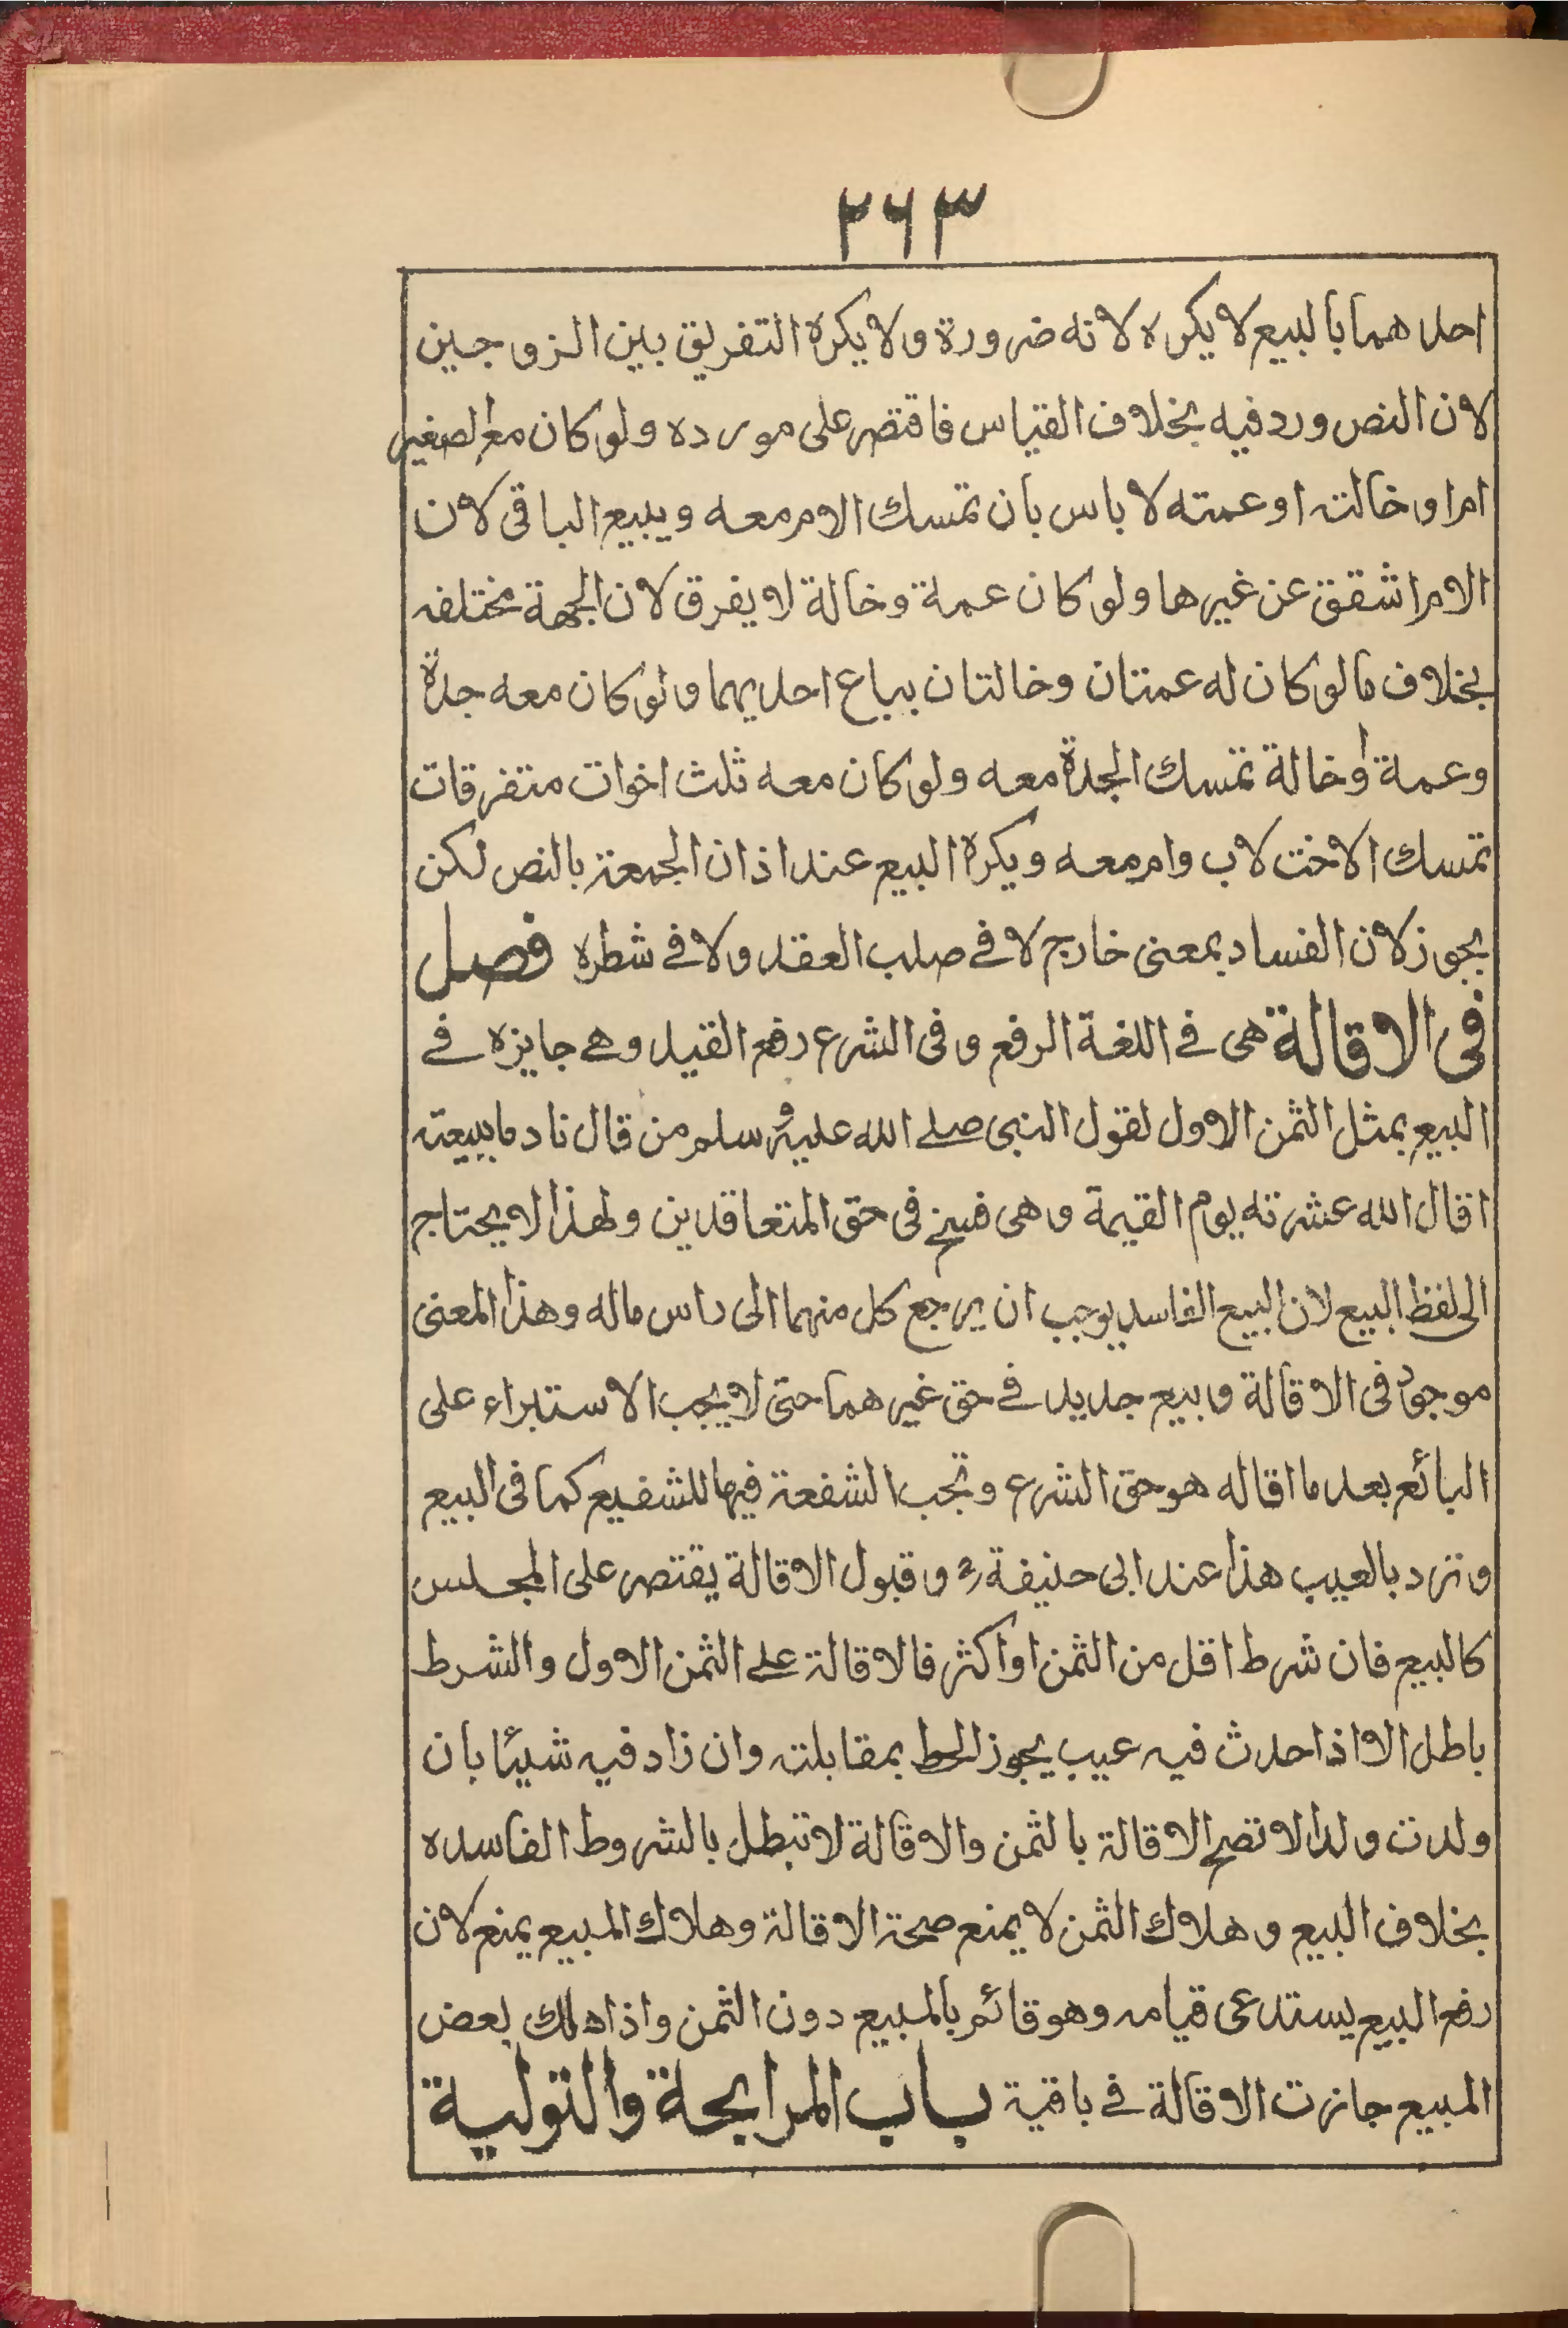 ٢٦٣
احدهما بالبيع لا يكره لانه ضرورة ولا يكره التفريق بين الزوجين
لان النص ورد فيه بخلاف القياس فاقتصر على مورده ولو كان مع الصغير
ام او خالته او عمته لا باس بان تمسك الام معه ويبيع الباقى لان
الام اشفق عن غيرها ولو كان عمة وخالة لا يفرق لان الجهة مختلفه
بخلاف ما لو كان له عمتان وخالتان يباع احديهما ولو كان معه جدة
وعمة او خالة تمسك الجدة معه ولو كان معه ثلث اخوات متفرقات
تمسك الاخت لاب وام معه ويكره البيع عند اذان الجمعة بالنص لكن
يجوز لان الفساد بمعنى خارج لا فے صلب العقد ولا فے شطره فصل
فى الاقالة هى فے اللغة الرفع وفى الشرع رفع القيد وهے جايزه فے
البيع بمثل الثمن الاول لقول النبى صلے الله عليه وسلم من قال نادما بيعته
اقال الله عشرته يوم القيمة وهى فسخ فى حق المتعاقدين ولهذا لا يحتاج
الى لفظ البيع لان البيع الفاسد يوجب ان يرجع كل منهما الى راس ماله وهذا المعنى
موجود فى الاقالة وبيع جديد فے حق غيرهما حتى لا يجب الاستبراء على
البائع بعد ما اقاله هو حق الشرع وتجب الشفعة فيها للشفيع كما فى البيع
وترد بالعيب هذا عند ابى حنيفة رح وقبول الاقالة يقتصر على المجلس
كالبيع فان شرط اقل من الثمن او اكثر فالاقالة علے الثمن الاول والشرط
باطل الا اذا حدث فيه عيب يجوز الحط بمقابلته وان زاد فيه شيئا بان
ولدت ولدا لا تصح الاقالة بالثمن والاقالة لا تبطل بالشروط الفاسده
بخلاف البيع وهلاك الثمن لا يمنع صحة الاقالة وهلاك المبيع يمنع لان
رفع البيع يستدعى قيامه وهو قائم بالمبيع دون الثمن واذا هلك بعض
المبيع جازت الاقالة فے باقية باب المرابحة والتولية